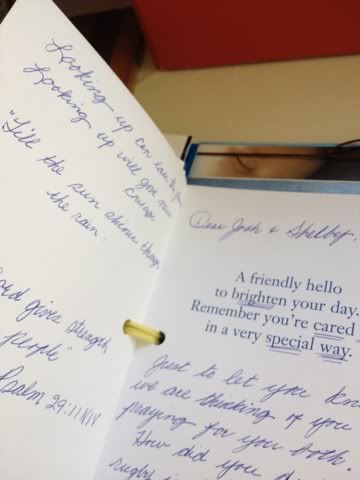 Looking up can
Looking up will give
courage
"Till the sun shine through
the rain.
gives strength
people"
Psalm 29:11 NIV
Dear Josh & Shelby,
A friendly hello
to brighten your day.
Remember you're cared
in a very special way.
Just to let you
we are thinking of you
praying for you both.
How did you
rugby